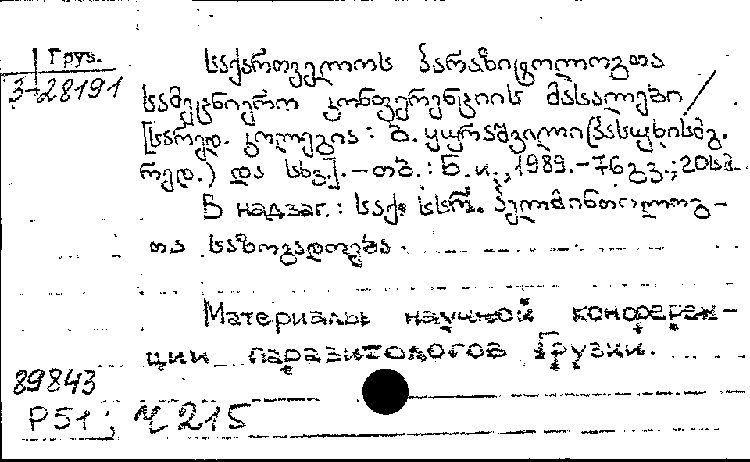 Груз.
3-28191
საქართველოს პარაზიტოლოგთა
სამეცნიერო კონფერენციის მასალები /
[სარედ. კოლეგია: ბ. ყურაშვილი (პასუხისმგ.
რედ.) და სხვ.]. - თბ.: Б. и., 1989. - 76 გვ.; 20 სმ.
В надзаг.: საქ. სსრ. ჰელმინთოლოგ-
თა საზოგადოება.
Материалы научной конферен-
ции паразитологов Грузии.
89843
Р51; Ч 215